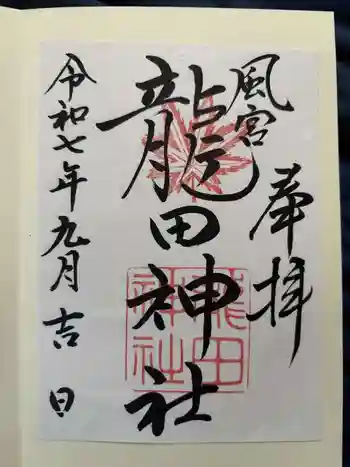 奉拝
風宮
龍田神社
令和七年九月吉日
龍田神社